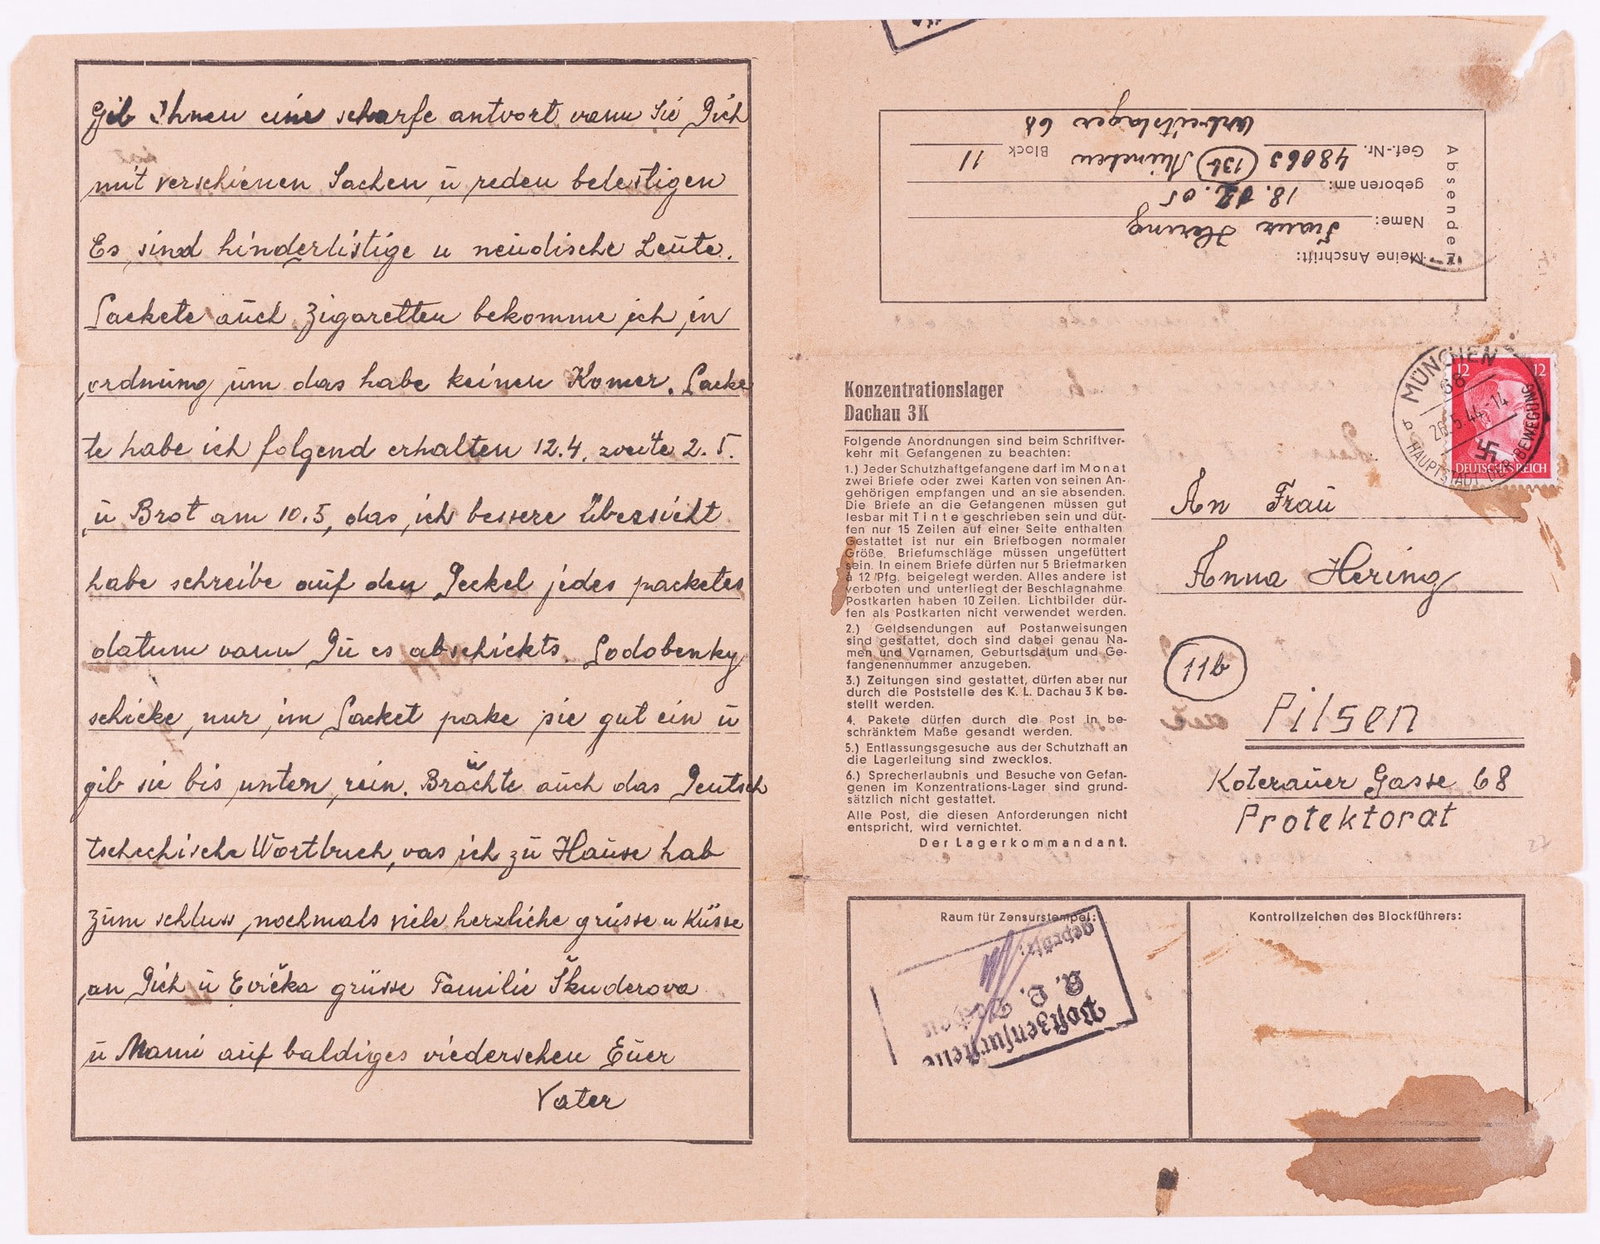 Gib Ihnen eine scharfe antvort vann Sie Dich
mit verschienen Sachen ū reden belestigen
Es sind hinderlistige u neidische Leute.
Packete auch Zigaretten bekomme ich in
ordnung um das habe keinen Komer. Packe
te habe ich folgend erhalten 12.4. zveite 2.5.
ū Brot am 10.5, das ich bessere Übersicht
habe schreibe auf den Deckel jedes packetes
datum vann Dū es abschickts. Podobenky
schicke, nur im Packet pake sie gut ein ū
gib sie bis unten rein. Bräūchte auch das Deutsch
tschechische Wörtbuch, vas ich zū Hause hab
zum schluss nochmals viele herzliche grüsse u Küsse
an Dich ū Evička grüsse Familie Škuderova
ū Mami auf baldiges viedersehen Eūer
Vater
Absender
Meine Anschrift:
Name: Franz Hering
geboren am: 18. 12. 05
Gef.-Nr. 48063 (13b) München Block 11
Arbeitslager 68
MÜNCHEN
68
26.5.44-14
b
HAUPTSTADT DER BEWEGUNG
12 12
DEUTSCHES REICH
Konzentrationslager
Dachau 3 K
Folgende Anordnungen sind beim Schriftver-
kehr mit Gefangenen zu beachten:
1.) Jeder Schutzhaftgefangene darf im Monat
zwei Briefe oder zwei Karten von seinen An-
gehörigen empfangen und an sie absenden.
Die Briefe an die Gefangenen müssen gut
lesbar mit Tinte geschrieben sein und dür-
fen nur 15 Zeilen auf einer Seite enthalten.
Gestattet ist nur ein Briefbogen normaler
Größe. Briefumschläge müssen ungefüttert
sein. In einem Briefe dürfen nur 5 Briefmarken
à 12 Pfg. beigelegt werden. Alles andere ist
verboten und unterliegt der Beschlagnahme.
Postkarten haben 10 Zeilen. Lichtbilder dür-
fen als Postkarten nicht verwendet werden.
2.) Geldsendungen auf Postanweisungen
sind gestattet, doch sind dabei genau Na-
men und Vornamen, Geburtsdatum und Ge-
fangenennummer anzugeben.
3.) Zeitungen sind gestattet, dürfen aber nur
durch die Poststelle des K. L. Dachau 3 K be-
stellt werden.
4. Pakete dürfen durch die Post in be-
schränktem Maße gesandt werden.
5.) Entlassungsgesuche aus der Schutzhaft an
die Lagerleitung sind zwecklos.
6.) Sprecherlaubnis und Besuche von Gefan-
genen im Konzentrations-Lager sind grund-
sätzlich nicht gestattet.
Alle Post, die diesen Anforderungen nicht
entspricht, wird vernichtet.
Der Lagerkommandant.
An Fraū
Anna Hering
11b
Pilsen
Koteraūer Gasse 68
Protektorat
27
Raum für Zensurstempel:
Kontrollzeichen des Blockführers:
Postzensurstelle
K. L. Dachau
geprüft: